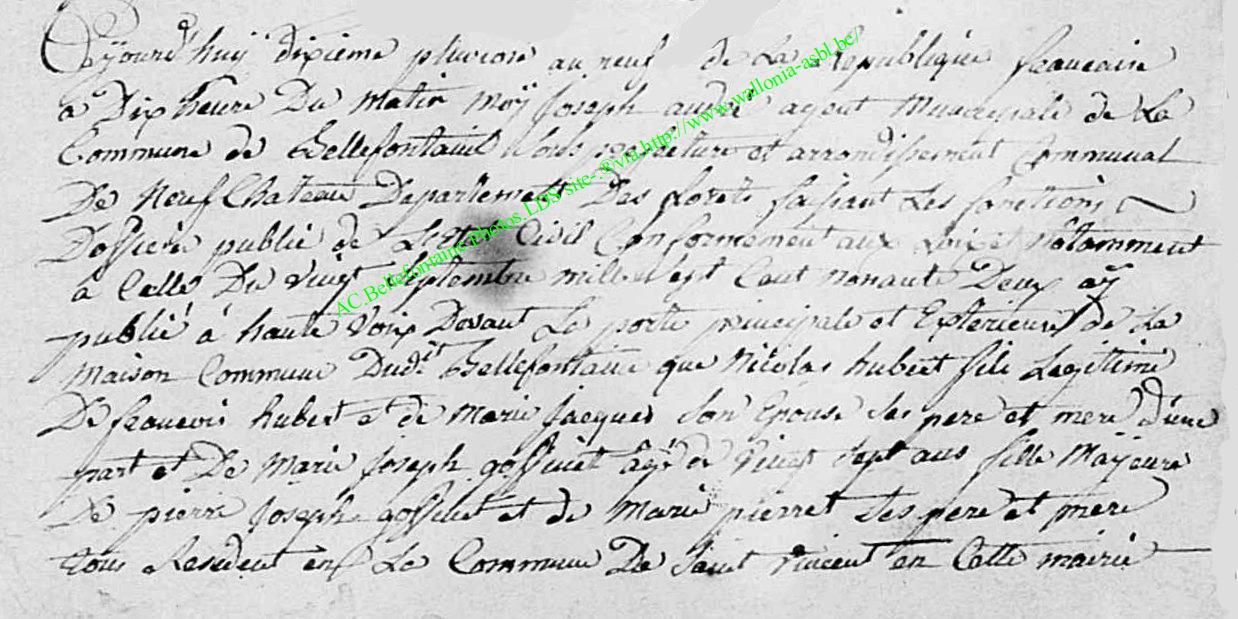 Cejourd'huy dixieme pluviose an neuf de La Republique francaise
a Dix heure Du Matin Moÿ Joseph andré agent Municipale de La
Commune de Bellefontaine Sous prefecture et arrondissement Communal
De Neuf Chateau Departement Des forets faisant Les fonctions
Dofficier public de L'Etat Civil Conformement aux Loix et Notamment
a Celle Du Vingt Septembre mille Sept Cent nonante Deux aÿ
publié a haute Voix Devant La porte principale et Exterieure de La
Maison Commune Dudit Bellefontaine que Nicolas hubert fils Legitime
De francois hubert et de Marie Jacques Son Epouse Ses pere et mere d'une
part et De Marie Joseph goffinet agé de Vingt Sept ans fille Majeure
De pierre Joseph goffinet et de Marie pierret Ses pere et mere
tous Resident en La Commune De Saint Vincent en Cette mairie
AC.Bellefontaine-Photos.LDS-site-.®via.http://www.wallonia-asbl.be/